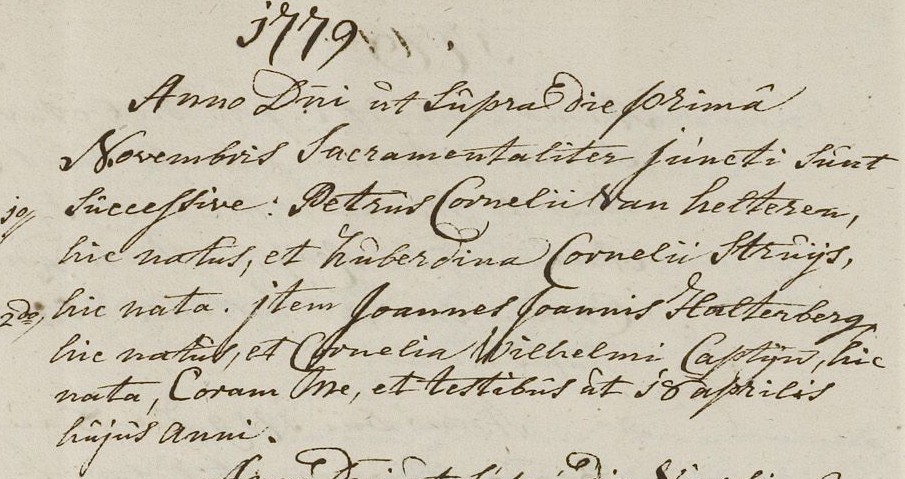 1779
Anno Dñi ût sûpra die primâ
Novembris Sacramentaliter jûncti sûnt
1o sûccessive: Petrûs Cornelii Van helteren,
hic natûs, et hûberdina Cornelii Strûijs,
2do, hic nata. jtem Joannes Joannis Halterberg
hic natûs, et Cornelia Wilhelmi Captijn, hic
nata, Coram Me, et testibûs ût 18 aprilis
hûjûs anni.